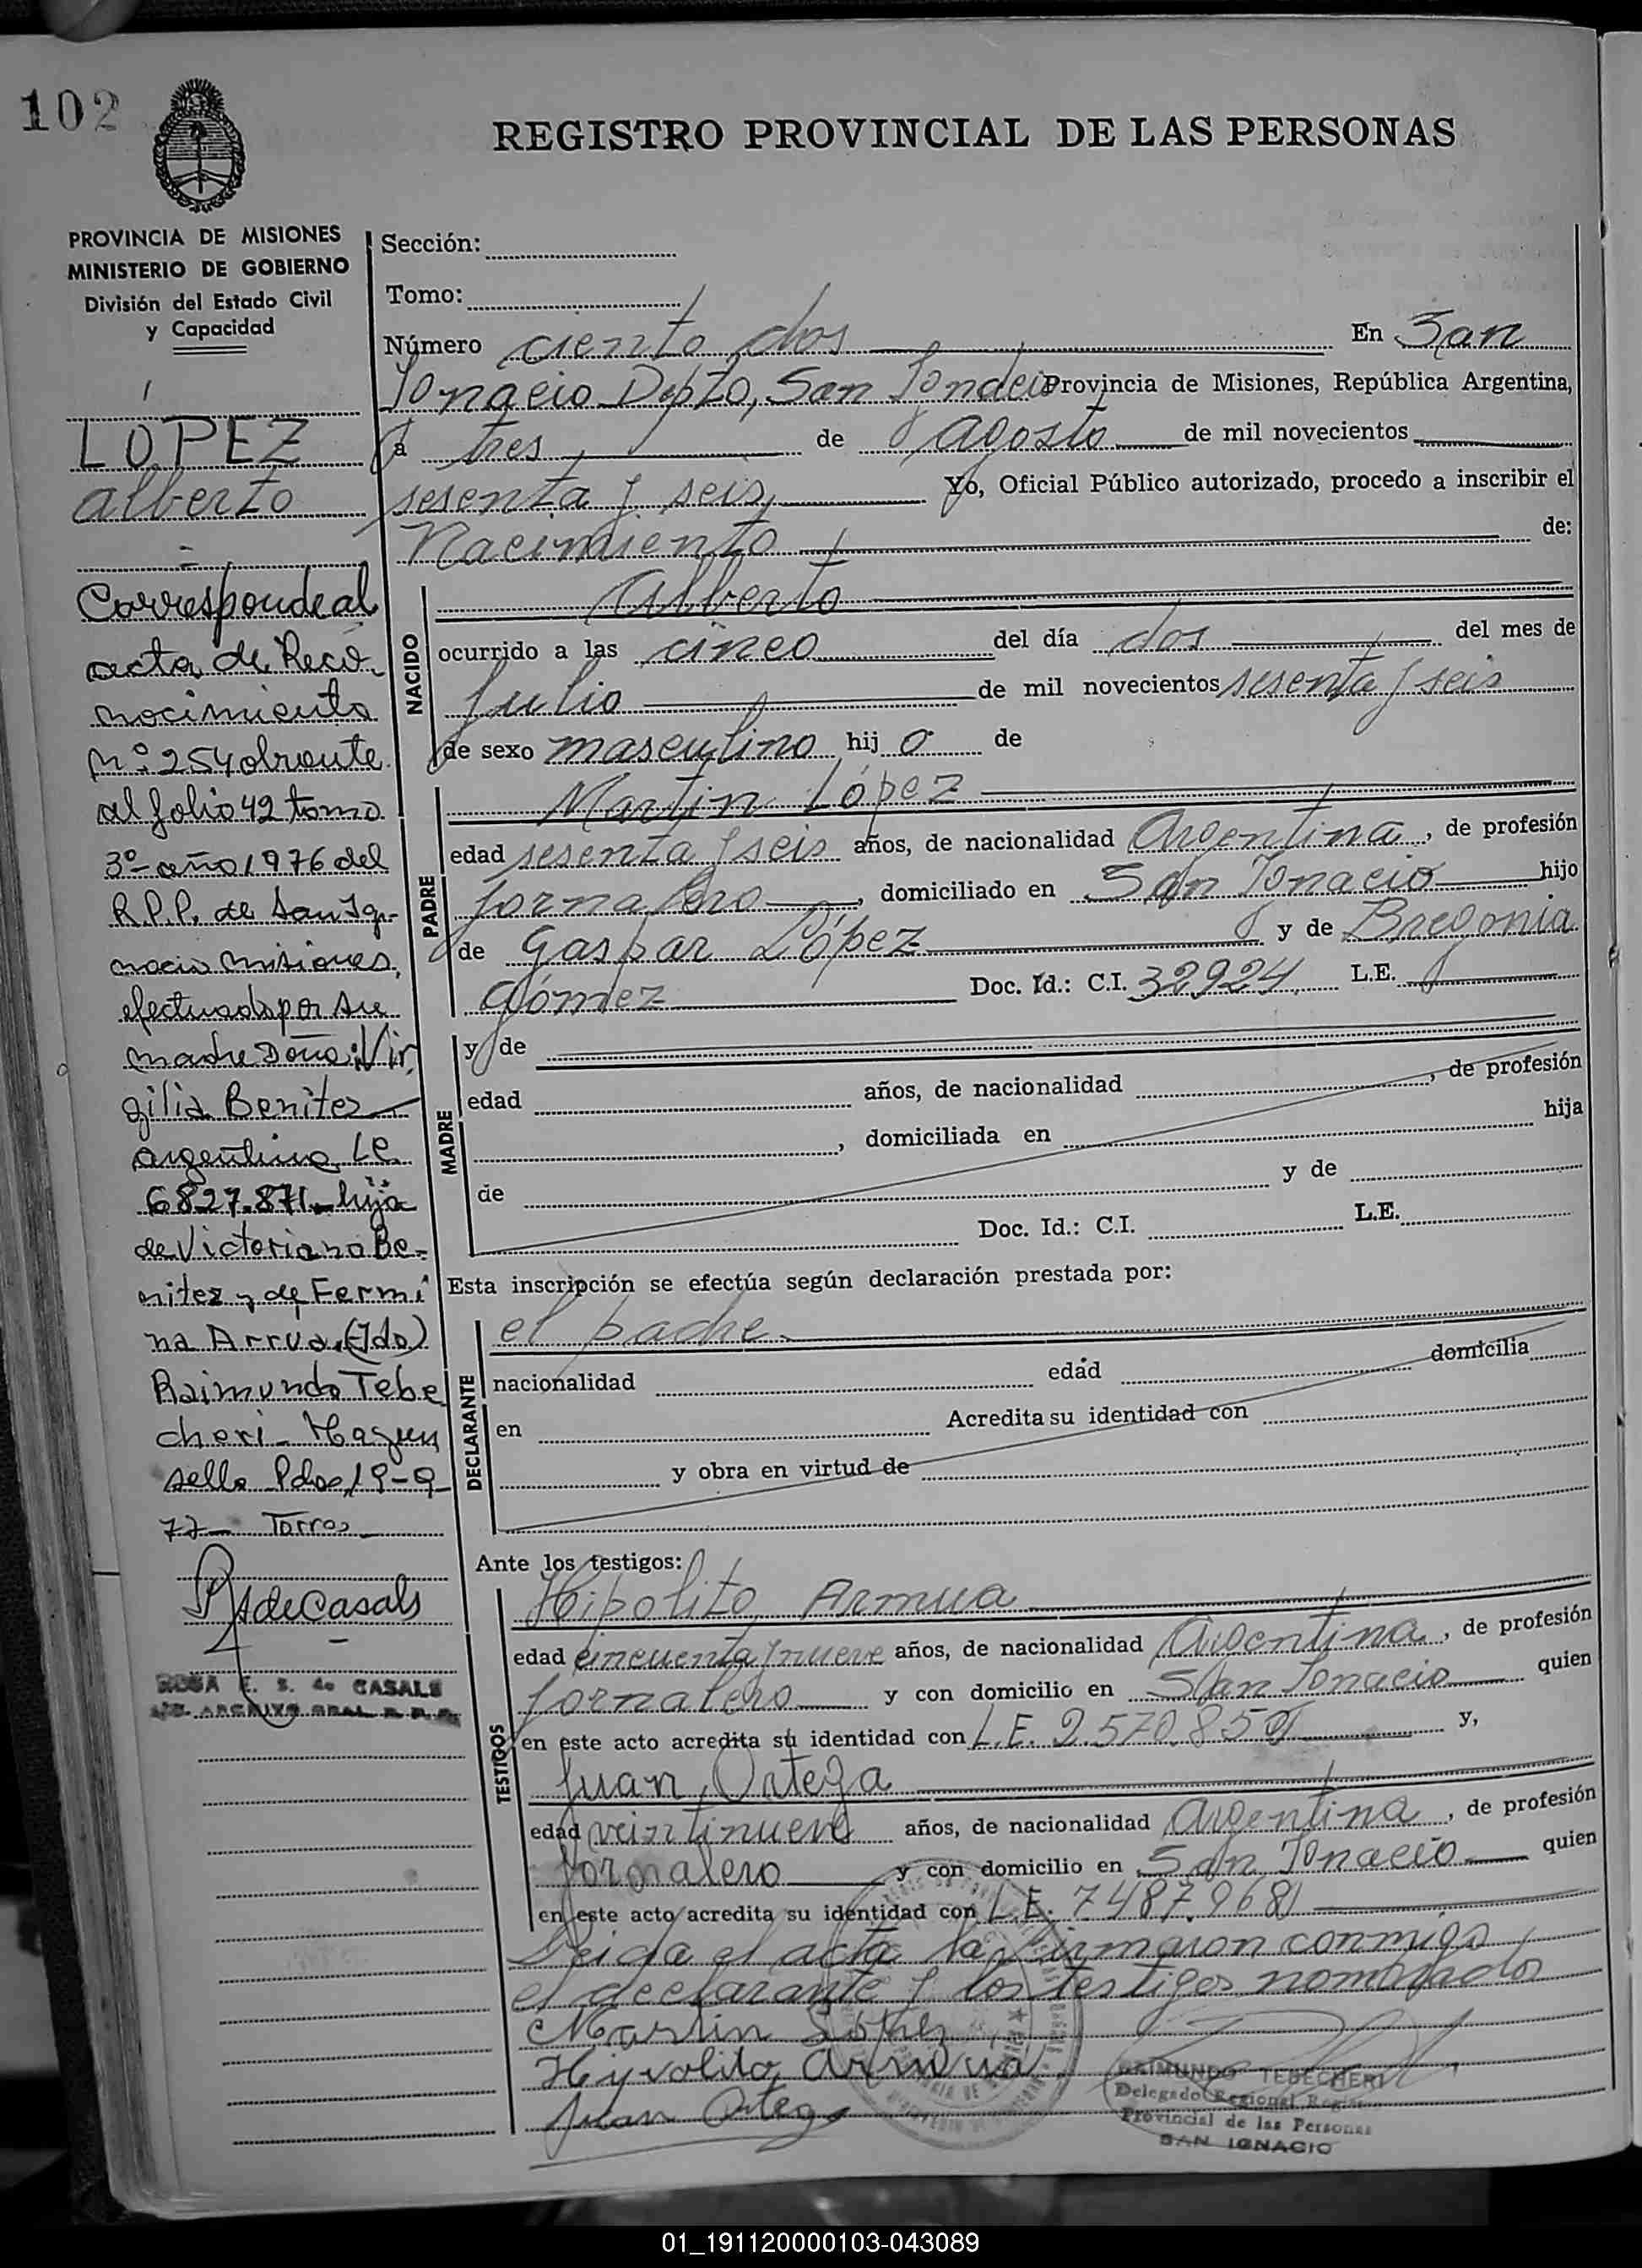 102
REGISTRO PROVINCIAL DE LAS PERSONAS
PROVINCIA DE MISIONES
MINISTERIO DE GOBIERNO
División del Estado Civil
y Capacidad
LOPEZ
alberto
Corresponde al
acta de Reco
nocimiento
Nº 254 obrante
al folio 42 tomo
3º año 1976 del
R.P.P. de San Ig-
nacio Misiones,
efectuado por su
madre Doña: Vir
gilia Benitez
argentina L.C.
6827.871 hija
de Victoriano Be-
nitez y de Fermi
na Arrua. (Fdo)
Raimundo Tebe
cheri - Hay un
sello Pdas, 19-9
77 - Torres
RdeCasals
ROSA E. S. de CASALS
Sección:
Tomo:
Número ciento dos En San
Ignacio Depto, San Ignacio Provincia de Misiones, República Argentina,
a tres de Agosto de mil novecientos
sesenta y seis Yo, Oficial Público autorizado, procedo a inscribir el
Nacimiento de:
NACIDO
Alberto
ocurrido a las cinco del día dos del mes de
Julio de mil novecientos sesenta y seis
de sexo masculino hij o de
PADRE
Martin López
edad sesenta y seis años, de nacionalidad Argentina, de profesión
Jornalero, domiciliado en San Ignacio hijo
de Gaspar López y de Bregonia
Gómez Doc. Id.: C.I. 32924 L.E.
MADRE
y de
edad años, de nacionalidad , de profesión
, domiciliada en hija
de y de
Doc. Id.: C.I. L.E.
Esta inscripción se efectúa según declaración prestada por:
DECLARANTE
el padre
nacionalidad edad domicilia
en Acredita su identidad con
y obra en virtud de
Ante los testigos:
TESTIGOS
Hipolito Armua
edad cincuenta y nueve años, de nacionalidad Argentina, de profesión
Jornalero y con domicilio en San Ignacio quien
en este acto acredita su identidad con L.E. 2.570.850 y,
Juan Ortega
edad veintinueve años, de nacionalidad Argentina, de profesión
Jornalero y con domicilio en San Ignacio quien
en este acto acredita su identidad con L.E. 7487.968
Leida el acta la firmaron conmigo
el declarante y los testigos nombrados
Martin López
Hipolito Armua
Juan Ortega
RAIMUNDO TEBECHERI
Delegado Regional Registro
Provincial de las Personas
SAN IGNACIO
01_191120000103-043089